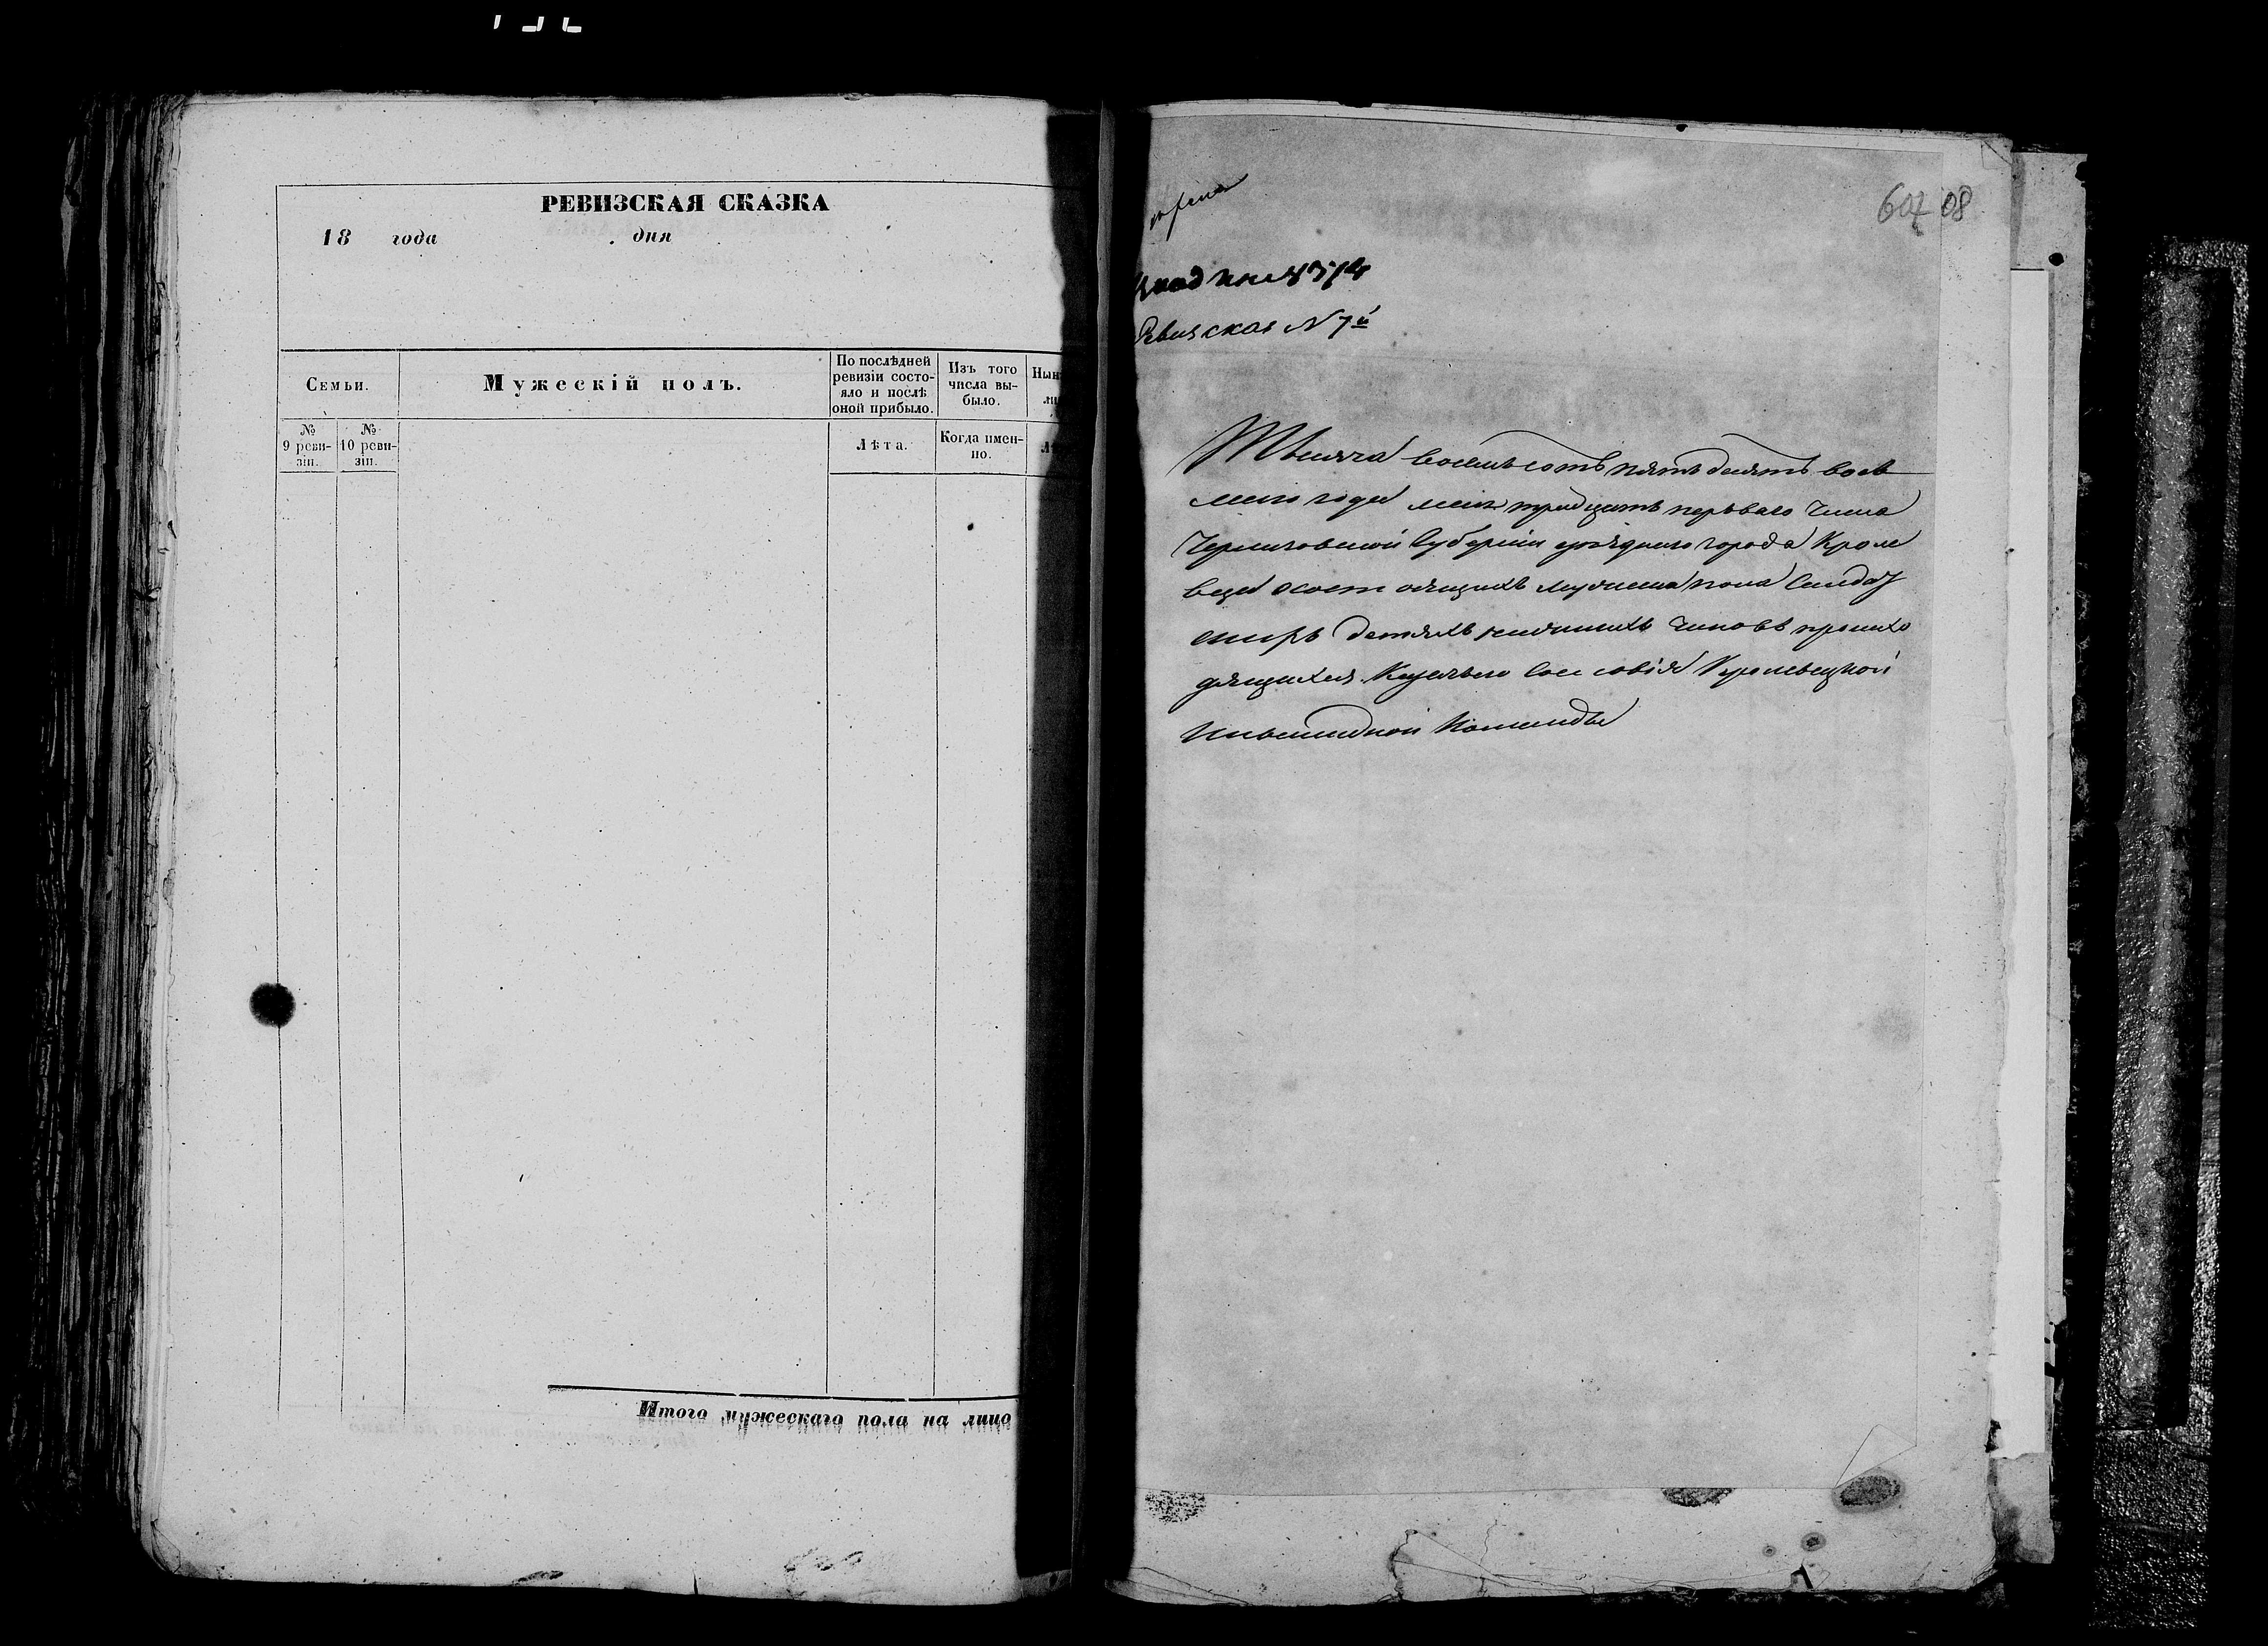 РЕВИЗСКАЯ СКАЗКА
18 года дня
Семьи.
Мужескій полъ.
По послѣдней ревизіи состо-
яло и послѣ
оной прибыло.
Изъ того
числа вы-
было.
№
9 реви-
зіи.
№
10 реви-
зіи.
Лѣта.
Когда имен-
но.
Итого мужескаго пола на лицо
607 08
Ревизская N 7й
Тысяча восемьсотъ пятьдесятъ вось
маго года мая тридцать перваго числа
Черниговской Губерніи уѣзднаго города Кроле
веца о состоящихъ мужеска пола Солдат
скихъ детяхъ нижнихъ чиновъ происхо
дящихъ Кролевецкой
Инвалидной Команды